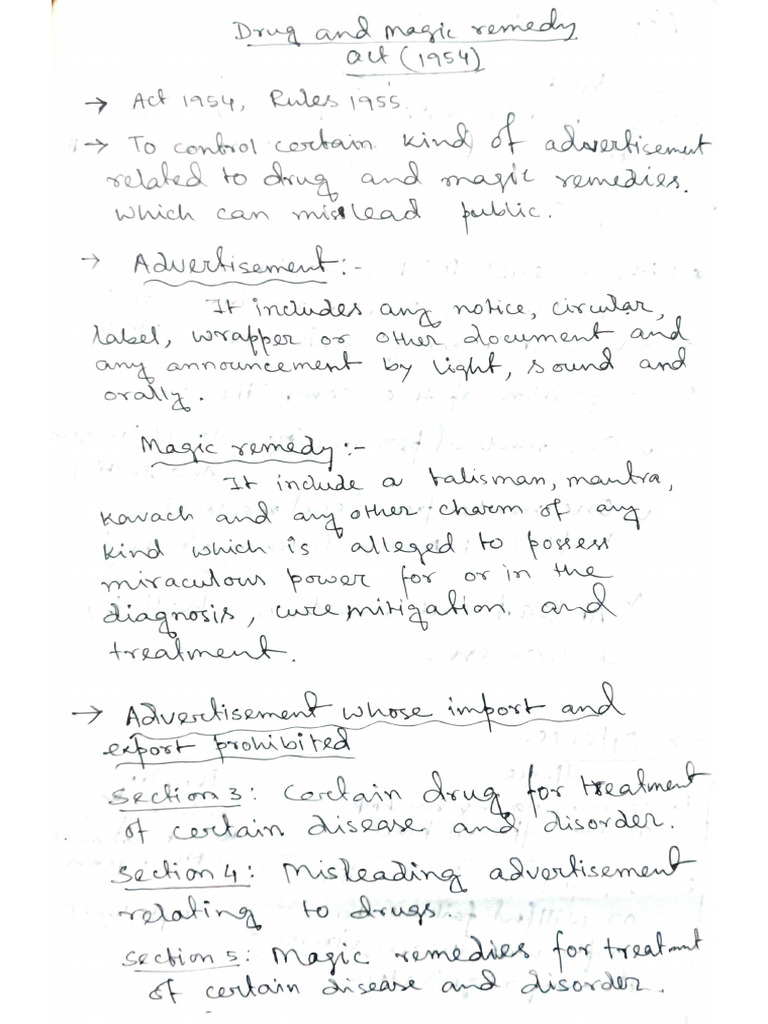 Drug and magic remedy
act (1954)
→ Act 1954, Rules 1955.
→ To control certain kind of advertisement
related to drug and magic remedies.
which can mislead public.
→ Advertisement :-
It includes any notice, circular,
label, wrapper or other document and
any announcement by light, sound and
orally.
Magic remedy :-
It include a talisman, mantra,
kavach and any other charm of any
kind which is alleged to possess
miraculous power for or in the
diagnosis, cure mitigation and
treatment.
→ Advertisement whose import and
export prohibited
Section 3: Certain drug for treatment
of certain disease and disorder.
Section 4: Misleading advertisement
relating to drugs.
Section 5: Magic remedies for treatment
of certain disease and disorder.